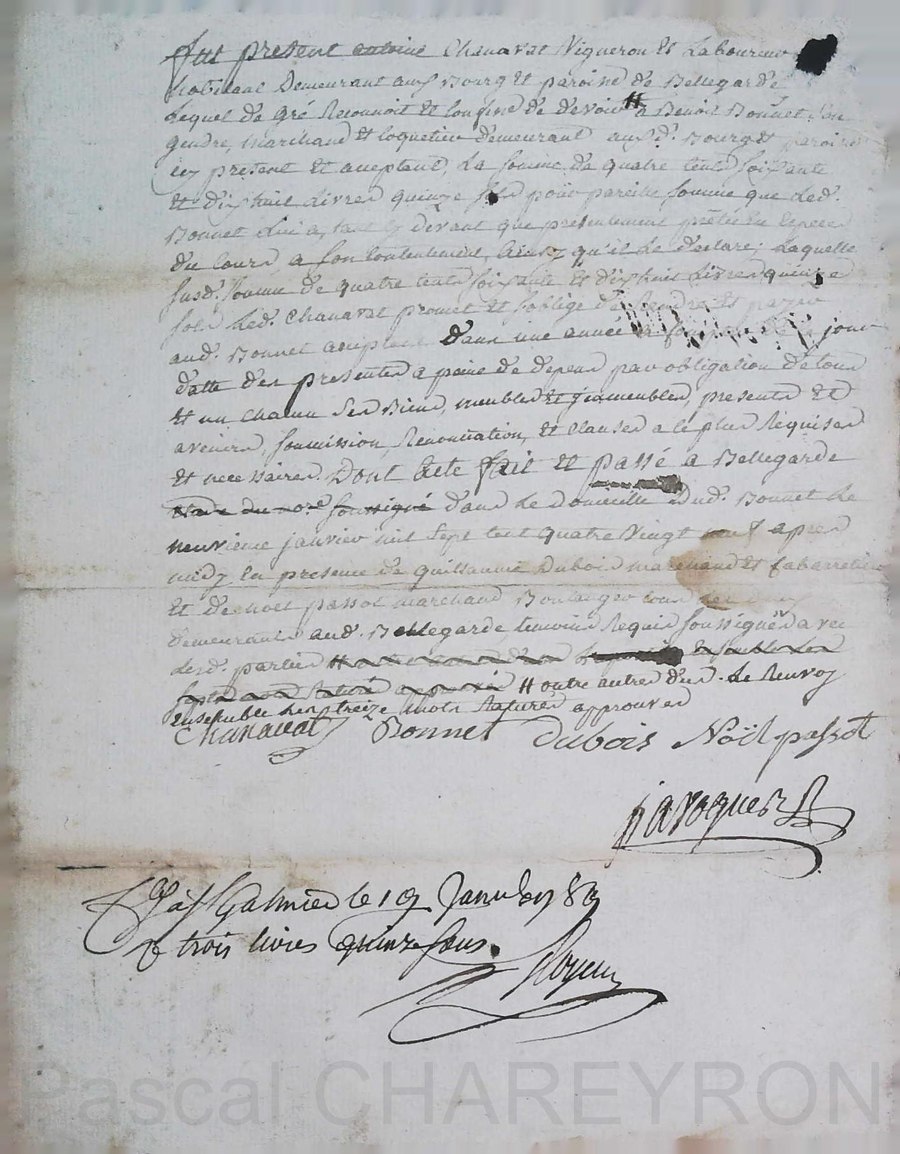 Fut présent antoine Chanavat Vigneron et Laboureur
habitant Demeurant aux Bourg et paroisse de Bellegarde
Lequel de gré Reconnoit et confesse de devoir # a Benoit Bonnet son
gendre, marchand et Coquetier demeurant aux d. Bourg et paroisse
icy présent et acceptant, La somme de quatre cents soixante
et dix huit Livres quinze sols pour pareille somme que led.
Bonnet Lui a, tant cy devant que présentement prêtée en Especes
du Cours a son Contentement, Ainsy qu'il Le declare; Laquelle
susd. somme de quatre cents soixante et dix huit Livres quinze
sols Led. Chanavat promet et s'oblige de Rendre et payer
aud. Bonnet acceptant Dans une année jour
datte des presentes a peine de depens par obligation de tous
et un chacun Ses Biens, meubles et immeubles, présents et
avenirs, soumission, Renonciation, et Clauses a ce plus Requises
et necessaires. Dont Acte fait et passé à Bellegarde
soussigné dans Le Domicille dud. Bonnet Le
neuvième janvier mil sept cent quatre vingt neuf apres
midy En presence de guillaume Dubois marchand et Cabarretier
et de noel passot marchand Boulanger tous
demeurants aud. Bellegarde temoins Requis soussignés avec
Lesd. parties
# outre autres d'us. Le Renvoy
Ensemble Les treize mots Raturés approuvés
Chanavat Bonnet Dubois Noël passot
javogues
a St Galmier le 19 Janvier 89
trois livres quinze sous.
Pascal CHAREYRON